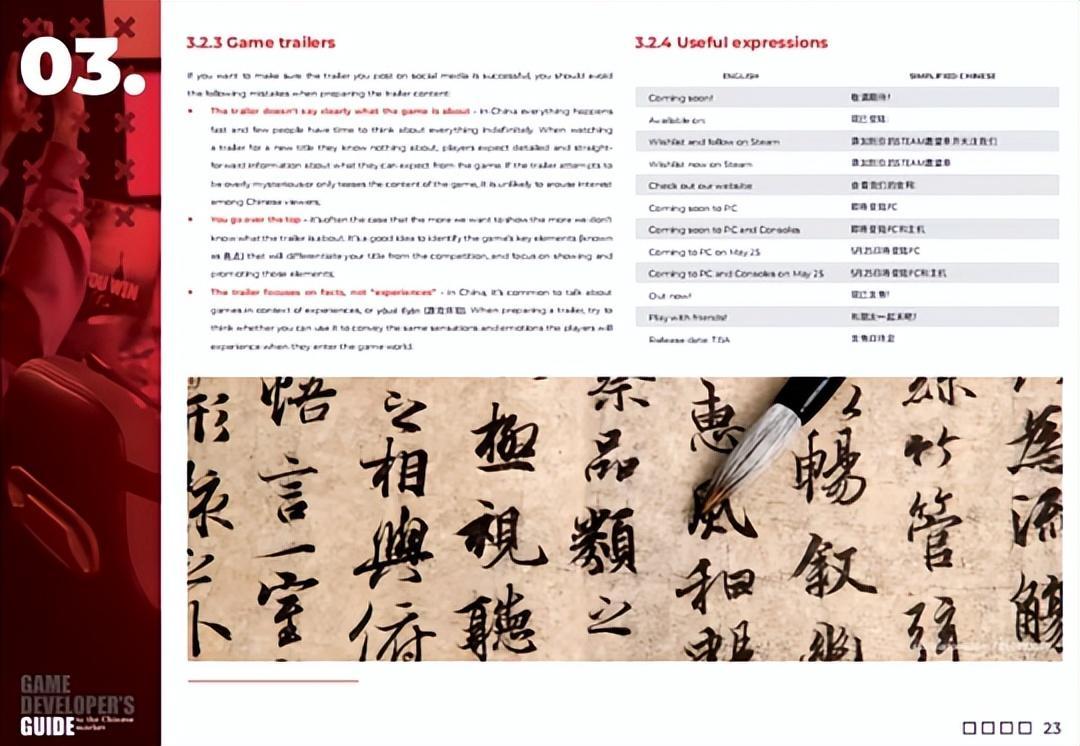 03.
3.2.3 Game trailers
If you want to make sure the trailer you post on social media is successful, you should avoid
the following mistakes when preparing the trailer content:
• The trailer doesn't say clearly what the game is about - in China everything happens
fast and few people have time to think about everything indefinitely. When watching
a trailer for a new title they know nothing about, players expect detailed and straight-
forward information about what they can expect from the game. If the trailer attempts to
be overly mysterious or only teases the content of the game, it is unlikely to arouse interest
among Chinese viewers.
• You go over the top - it's often the case that the more we want to show the more we don't
know what the trailer is about. It's a good idea to identify the game's key elements (known
as 亮点) that will differentiate your title from the competition, and focus on showing and
promoting those elements.
• The trailer focuses on facts, not "experiences" - in China, it's common to talk about
games in context of experiences, or yóuxì tǐyàn (游戏体验). When preparing a trailer, try to
think whether you can use it to convey the same sensations and emotions the players will
experience when they enter the game world.
3.2.4 Useful expressions
ENGLISH SIMPLIFIED CHINESE
Coming soon! 敬请期待!
Available on: 现已登陆:
Wishlist and follow on Steam 添加到您的STEAM愿望单并关注我们
Wishlist now on Steam 添加到您的STEAM愿望单
Check out our website 查看我们的官网:
Coming soon to PC 即将登陆PC
Coming soon to PC and Consoles 即将登陆PC和主机
Coming to PC on May 25 5月25日将登陆PC
Coming to PC and Consoles on May 25 5月25日将登陆PC和主机
Out now! 现已发售!
Play with friends! 和朋友一起来吧!
Release date: TBA 发售日待定
為流觴
竹管弦
暢叙
惠風和暢
品類之
極視聽
之相與俯
悟言一室
形
YOU WIN
GAME
DEVELOPER'S
GUIDE to the Chinese
market
23